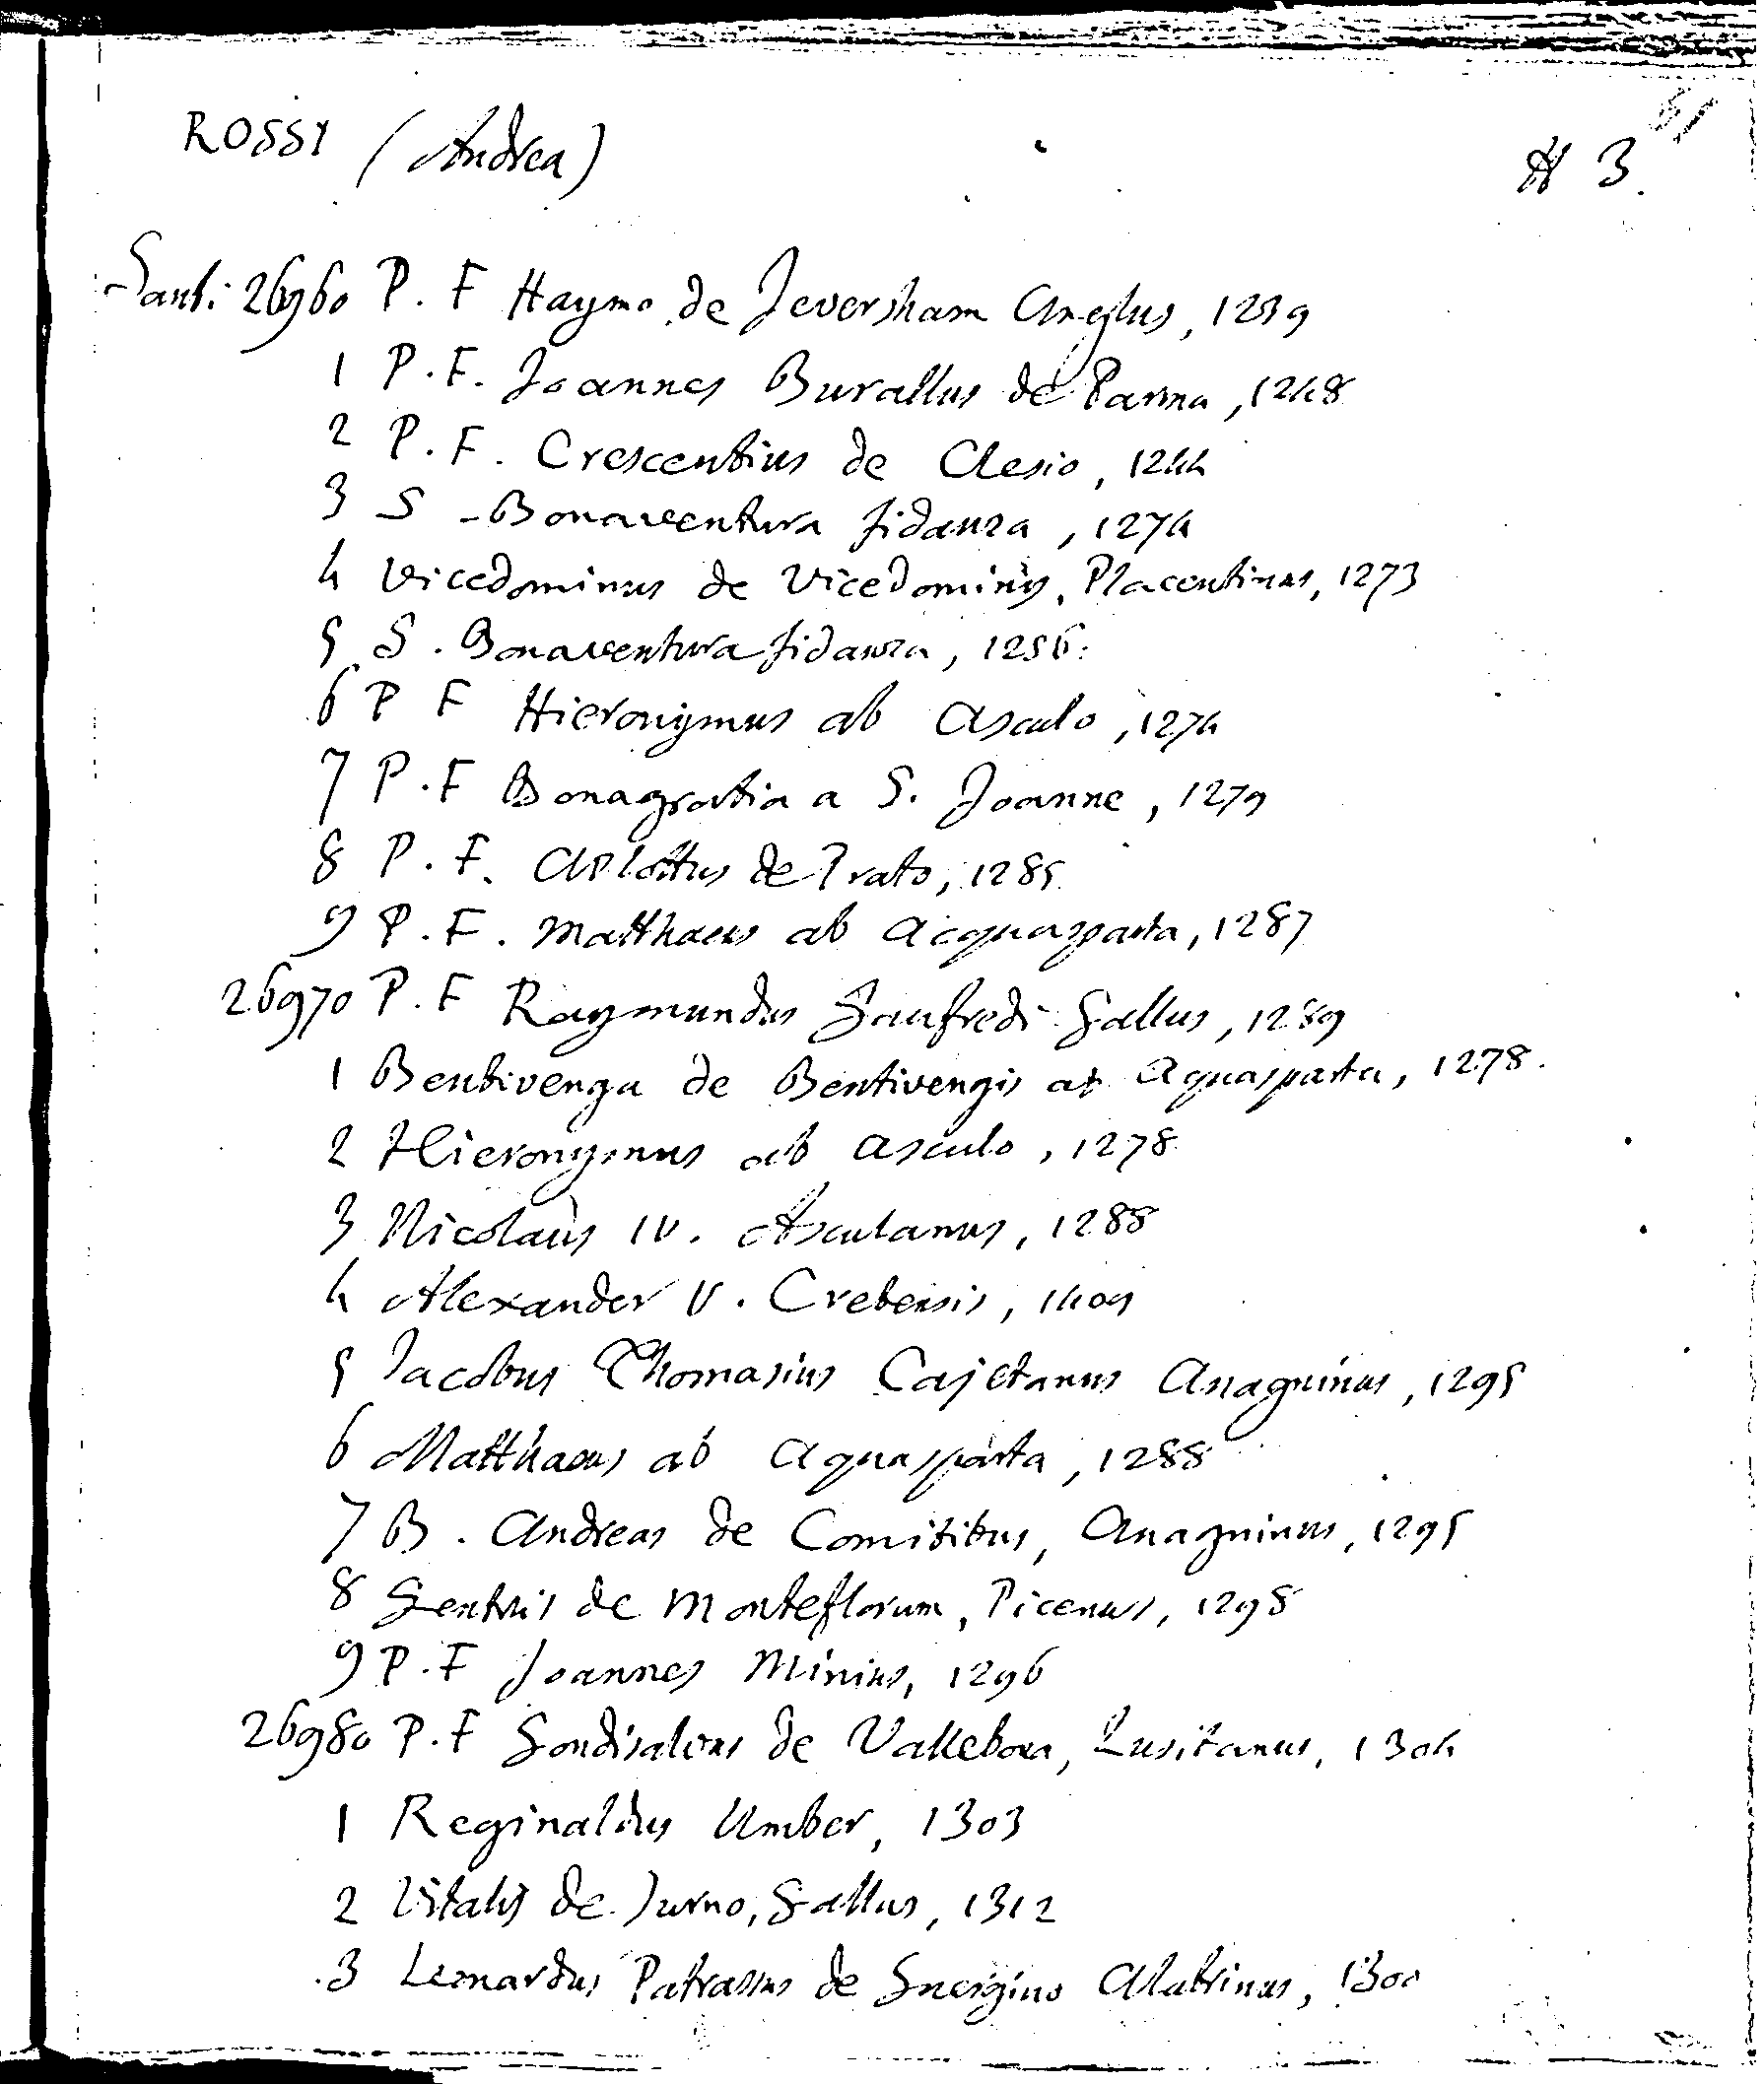 ROSSI (Andrea)
H 3
Santi 26960 P. F Haymo de Feversham Anglus, 1239
1 P. F. Joannes Burallus de Parma, 1248
2 P. F. Crescentius de Clesio, 1244
3 S - Bonaventura fidanza, 1274
4 Vicedominus de Vicedominis, Placentinus, 1273
5 S. Bonaventura fidanza, 1256.
6 P F Hieronymus ab Asculo, 1274
7 P. F Bonagratia a S. Joanne, 1279
8 P. F. Arlottus de Prato, 1285
9 P. F. Matthaeus ab Acquasparta, 1287
26970 P. F Raymundus Gaufredi Gallus, 1289
1 Bentivenga de Bentivengis ab Aquasparta, 1278.
2 Hieronymus ab Asculo, 1278
3 Nicolaus IV. Asculanus, 1288
4 Alexander V. Cretensis, 1409
5 Jacobus Thomasius Cajetanus Anagninus, 1295
6 Matthaeus ab Aquasparta, 1288
7 B. Andreas de Comitibus, Anagninus, 1295
8 Gentilis de Monteflorum, Picenus, 1298
9 P. F Joannes Minius, 1296
26980 P. F Gondisalvus de Vallebona, Lusitanus, 1304
1 Reginaldus Umber, 1303
2 Vitalis de Furno, Gallus, 1312
3 Leonardus Patrassus de Guergino Alatrinus, 1300